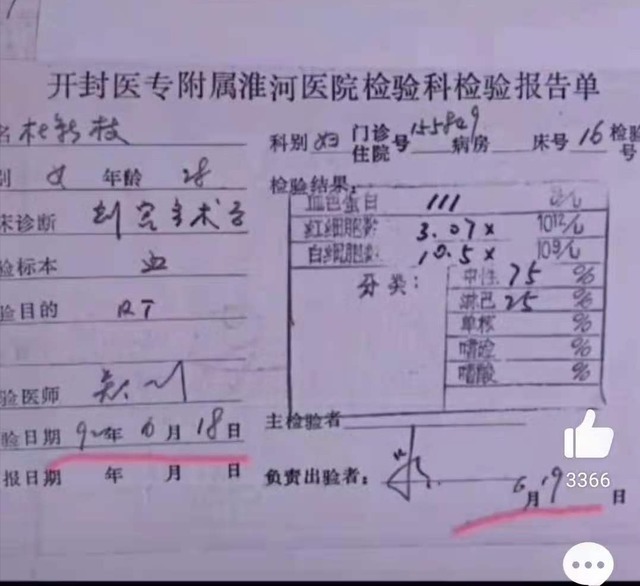 开封医专附属淮河医院检验科检验报告单
名 杜新枝 科别 妇 门诊 住院 号 155829 病房 床号 16 检验号
别 女 年龄 28 检验结果:
床诊断 剖宫手术后
验标本 血
验目的 RT
血色蛋白 111 g/L
红细胞数 3.07× 10¹²/L
白细胞数 10.5× 10⁹/L
分类: 中性 75 %
淋巴 25 %
单核 %
嗜硷 %
嗜酸 %
验医师
验日期 92年 6月 18日 主检验者
报日期 年 月 日 负责出验者:
6月19日
3366